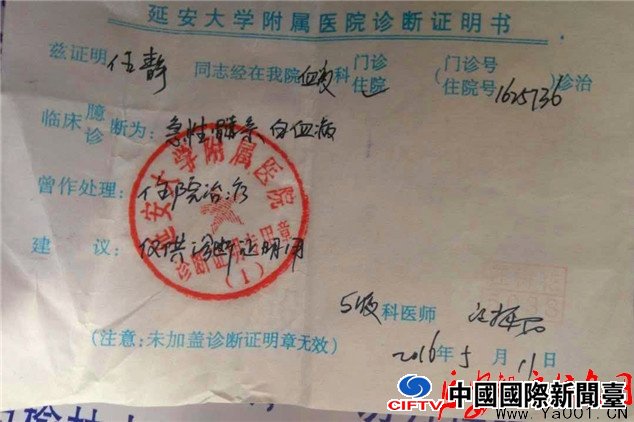 延安大学附属医院诊断证明书
兹证明 任静 同志经在我院 血液 科 门诊 住院 (门诊号 住院号 1625736) 诊治
临床 臆 诊 断为: 急性髓系白血病
曾作处理: 住院治疗
建 议: 仅供诊断证明用
科医师
(注意:未加盖诊断证明章无效)
2016年5月11日
延安大学附属医院
(1)
CIFTV
中國國際新聞臺
www.Ya001.CN